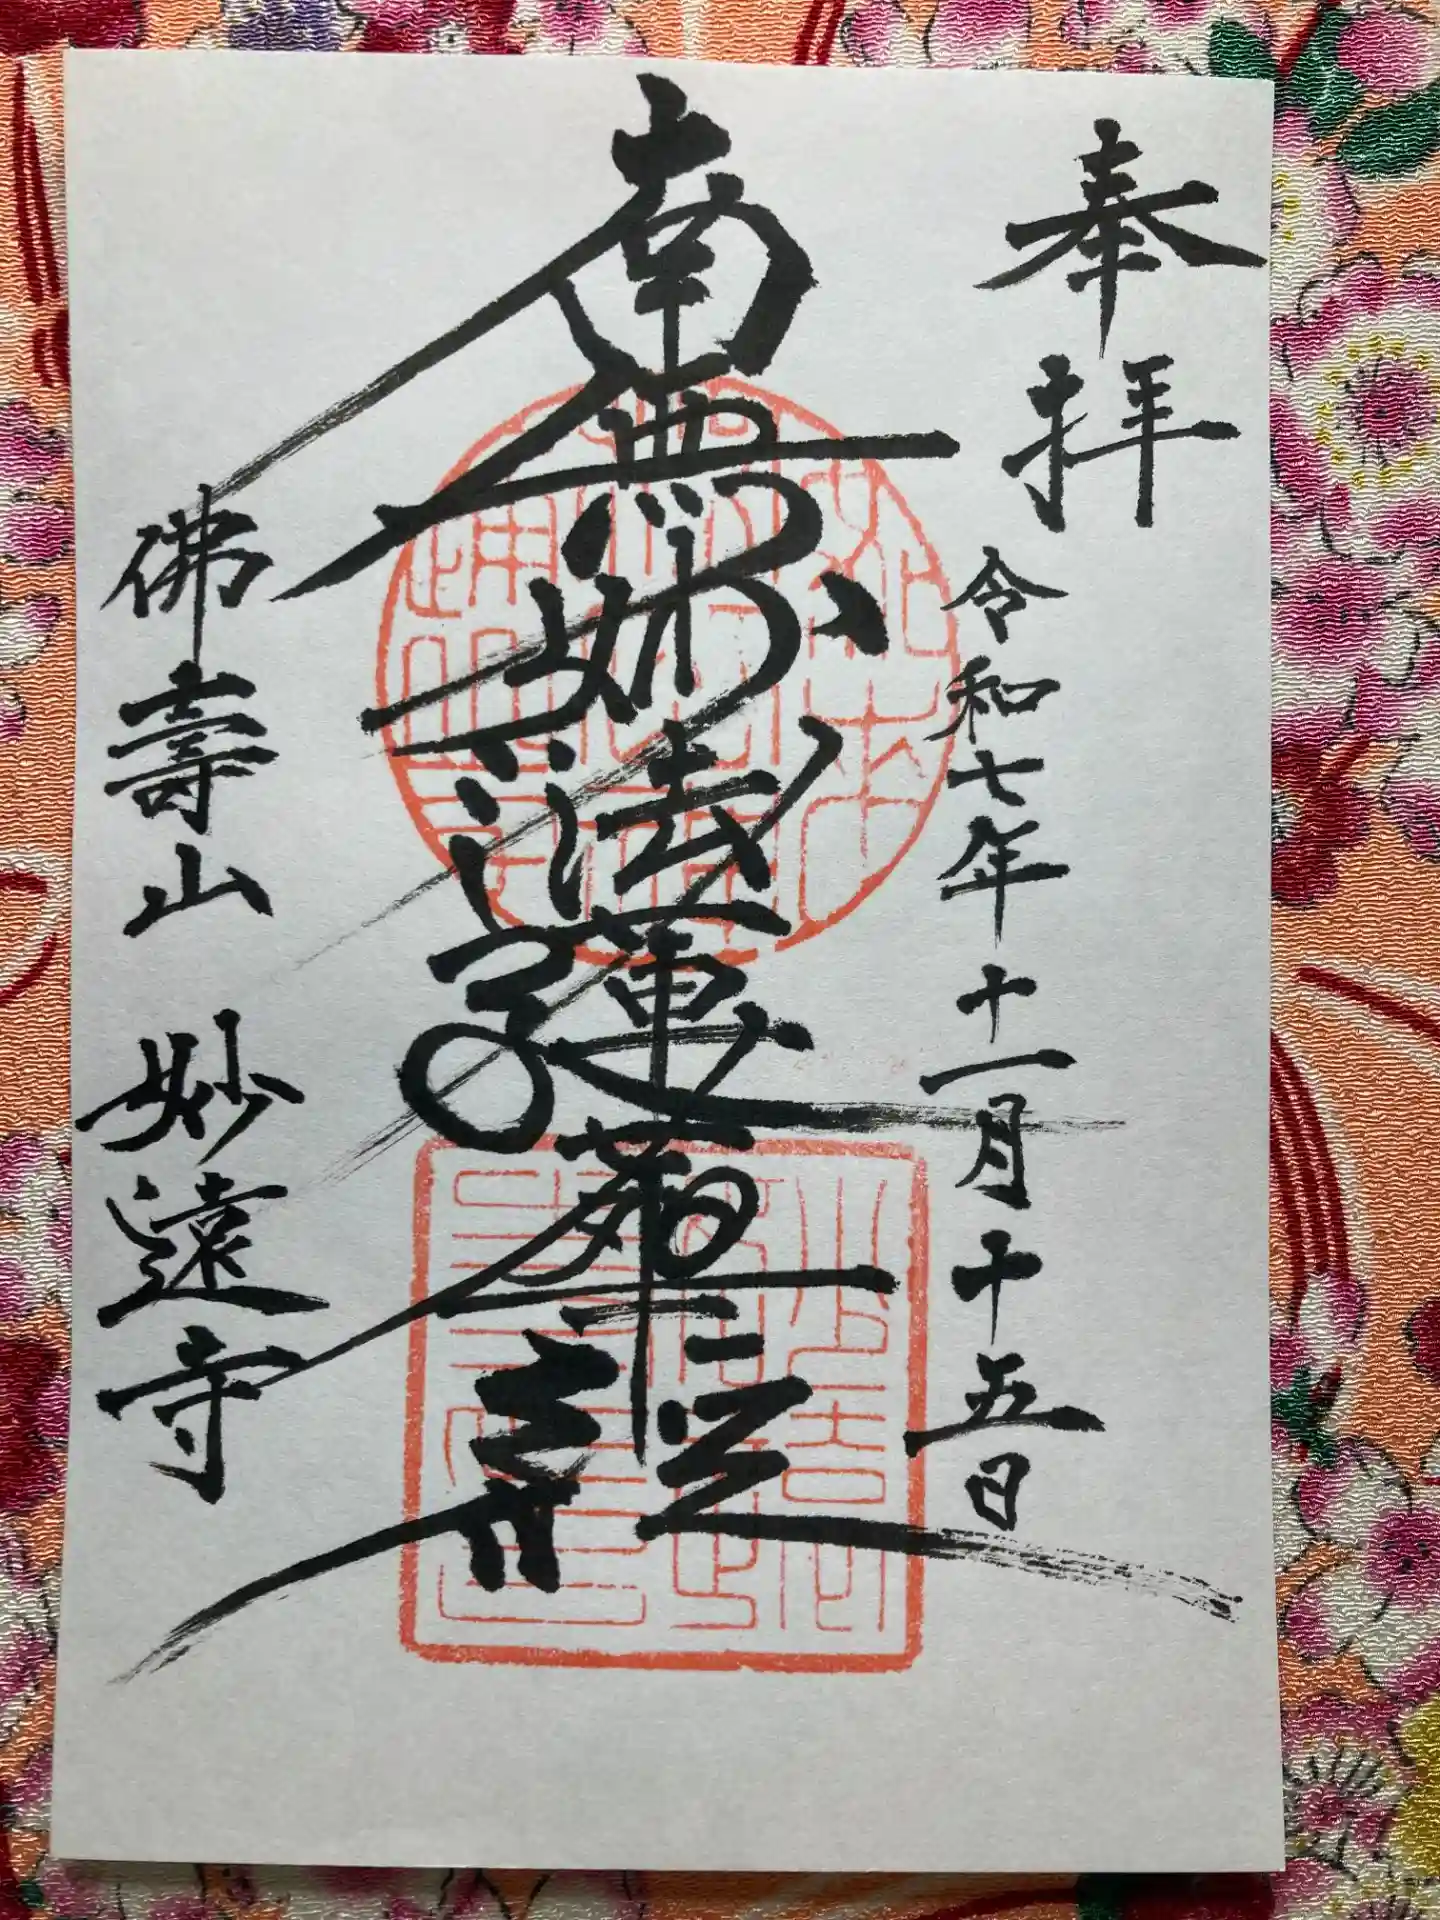 奉拝
令和七年十一月十五日
南無妙法蓮華経
佛壽山 妙遠寺